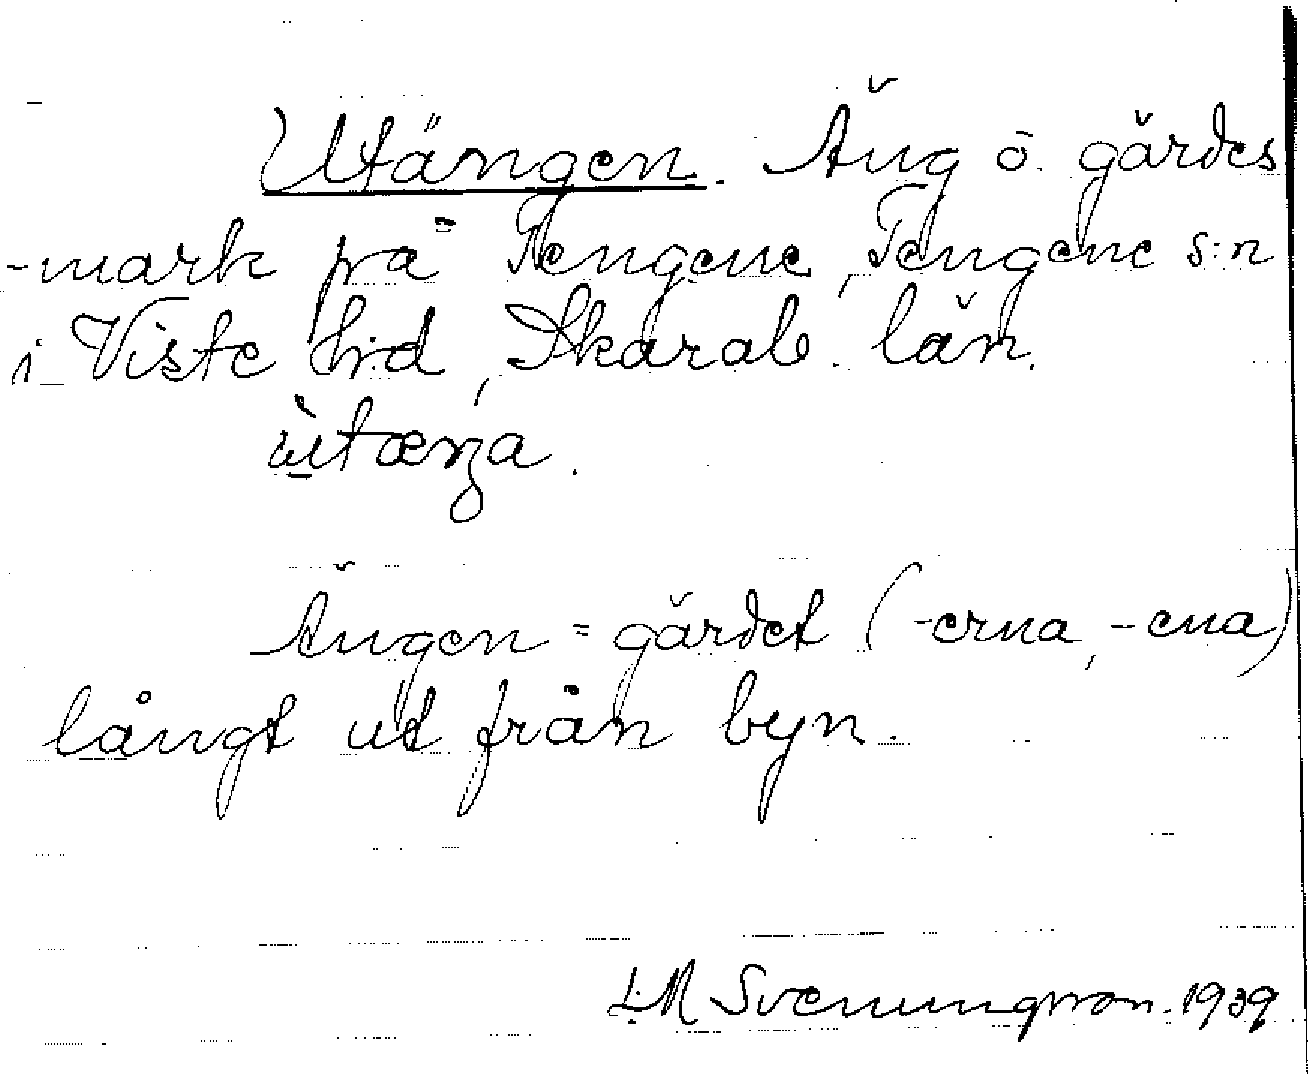 Utängen. Äng o. gärdes
-mark på Tengene, Tengene s:n
i Viste hrd, Skarab. län.
ùtæŋa.
Ängen = gärdet (-erna, -ena)
långt ut från byn.
L.M Svenungsson. 1939